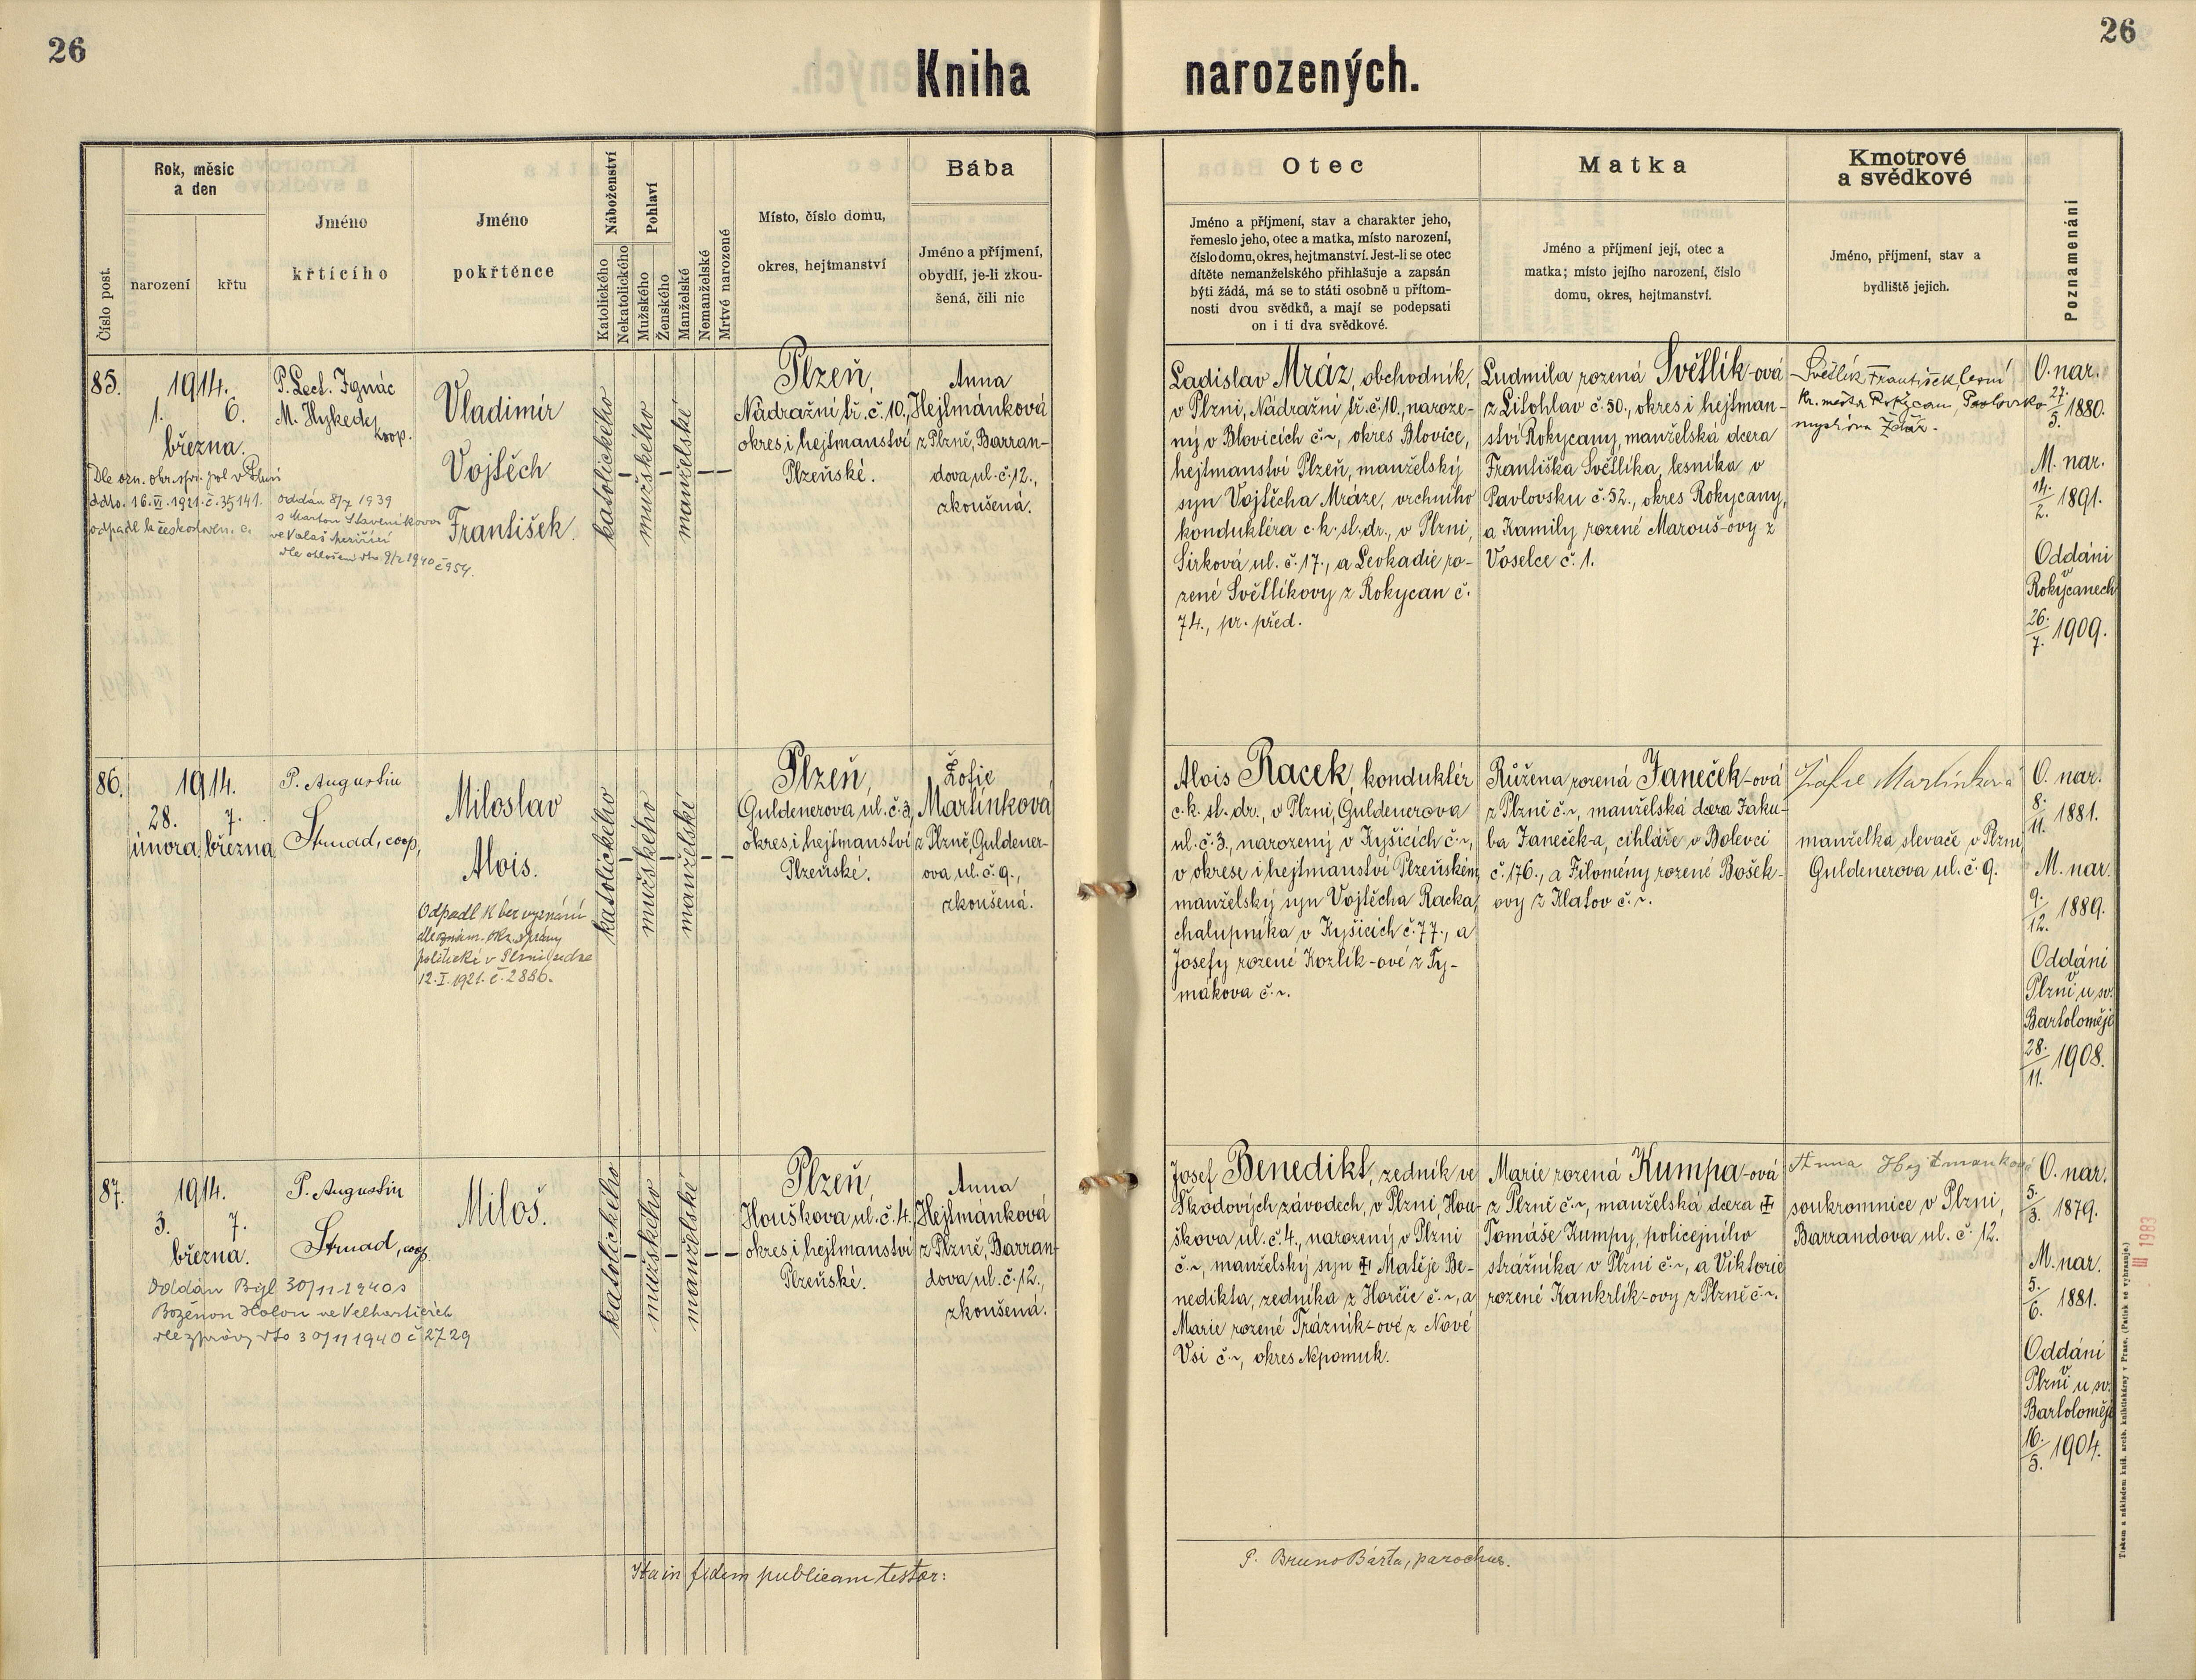 26
26
Kniha narozených.
Číslo post.
Rok, měsíc
a den
narození
křtu
Jméno
křtícího
Jméno
pokřtěnce
Náboženství
Katolického
Nekatolického
Pohlaví
Mužského
Ženského
Manželské
Nemanželské
Mrtvé narozené
Místo, číslo domu,
okres, hejtmanství
Bába
Jméno a příjmení,
obydlí, je-li zkou-
šená, čili nic
Otec
Jméno a příjmení, stav a charakter jeho,
řemeslo jeho, otec a matka, místo narození,
číslo domu, okres, hejtmanství. Jest-li se otec
dítěte nemanželského přihlašuje a zapsán
býti žádá, má se to státi osobně u přítom-
nosti dvou svědků, a mají se podepsati
on i ti dva svědkové.
Matka
Jméno a příjmení její, otec a
matka; místo jejího narození, číslo
domu, okres, hejtmanství.
Kmotrové
a svědkové
Jméno, příjmení, stav a
bydliště jejich.
Poznamenání
85.
1914.
1. 6.
března.
Dle ozn. obv. spr. pol. v Plzni
ddto. 16.VI.1921.č.35141.
odpadl k českosloven. c.
P. Lect. Ignác
M. Hykede,
koop.
oddán 8/7 1939
ve Valaš. Meziříčí
dle ohlášení dto. 9/2 1940 č 954.
Vladimír
Vojtěch
František.
katolického
mužského
manželské
Plzeň,
Nádražní tř. č. 10.,
okres i hejtmanství
Plzeňské.
Anna
Hejtmánková
z Plzně, Barran-
dova ul. č. 12.,
zkoušená.
Ladislav Mráz, obchodník,
v Plzni, Nádražní tř. č. 10., naroze-
ný v Blovicích č. ~, okres Blovice,
hejtmanství Plzeň, manželský
syn Vojtěcha Mráze, vrchního
kondukléra c. k. st. dr., v Plzni,
Sirková ul. č. 17., a Leokadie ro-
zené Světlíkovy z Rokycan č.
74., pr. před.
Ludmila rozená Světlík-ová
z Litohlav č. 50., okres i hejtman-
ství Rokycany, manželská dcera
Františka Světlíka, lesníka v
Pavlovsku č. 52., okres Rokycany,
a Kamily rozené Marouš-ovy z
Voselce č. 1.
Světlík František, lesní
kr. města Rokycan, Pavlovsko
myslivna Žďár.
O. nar.
27./5. 1880.
M. nar.
14./2. 1891.
Oddáni
v
Rokycanech
26./7. 1909.
86.
1914.
28. 7.
února března
P. Augustin
Strnad, coop,
Miloslav
Alois.
Odpadl k bez vyznání
dle oznám. okr. správy
politické v Plzni ze dne
12.I.1921. č. 2886.
katolického
mužského
manželské
Plzeň,
Guldenerova ul. č. 3,
okres i hejtmanství
Plzeňské.
Žofie
Martínková
z Plzně, Guldener-
ova ul. č. 9.,
zkoušená.
Alois Racek, kondukter
c. k. st. dr., v Plzni, Guldenerova
ul. č. 3., narozený v Kyšicích č. ~,
v okrese i hejtmanství Plzeňském,
manželský syn Vojtěcha Racka,
chalupníka v Kyšicích č. 77., a
Josefy rozené Kozlík-ové z Ty-
mákova č. ~.
Růžena rozená Janeček-ová
z Plzně č. ~, manželská dcera Jaku-
ba Janeček-a, cihláře v Bolevci
č. 176., a Filomény rozené Bošek-
ovy z Klatov č. ~.
Žofie Martínková
manželka slevače v Plzni,
Guldenerova ul. č. 9.
O. nar.
8./11. 1881.
M. nar.
9./12. 1889.
Oddáni
v
Plzni u sv.
Bartoloměje
28./11. 1908.
87.
1914.
3. 7.
března.
Oddán Byl 30/11-1940 s
Boženou Holou ve Velharticích
dle zprávy dto 30/11 1940 č 2729
P. Augustin
Strnad, coop.
Miloš.
katolického
mužského
manželské
Plzeň,
Houškova ul. č. 4.
okres i hejtmanství
Plzeňské.
Anna
Hejtmánková
z Plzně, Barran-
dova ul. č. 12.,
zkoušená.
Josef Benedikt, zedník ve
Škodových závodech, v Plzni, Hou-
škova ul. č. 4., narozený v Plzni
č. ~, manželský syn ‡ Matěje Be-
nedikta, zedníka z Horčic č. ~, a
Marie rozené Trázník-ové z Nové
Vsi č. ~, okres Nepomuk.
Marie rozená Kumpa-ová
z Plzně č. ~, manželská dcera ‡
Tomáše Kumpy, policejního
strážníka v Plzni č. ~, a Viktorie
rozené Kankrlík-ovy z Plzně č. ~.
Anna Hejtmanková
soukromnice v Plzni,
Barrandova ul. č. 12.
O. nar.
5./3. 1879.
M. nar.
5./6. 1881.
Oddáni
v
Plzni u sv.
Bartoloměje
16./5. 1904.
Ita in fidem publicam testor:
P. Bruno Bárta, parochus.
III 1983
Tiskem a nákladem kníž. arcib. knihtiskárny v Praze. (Patisk se vyhrazuje.)